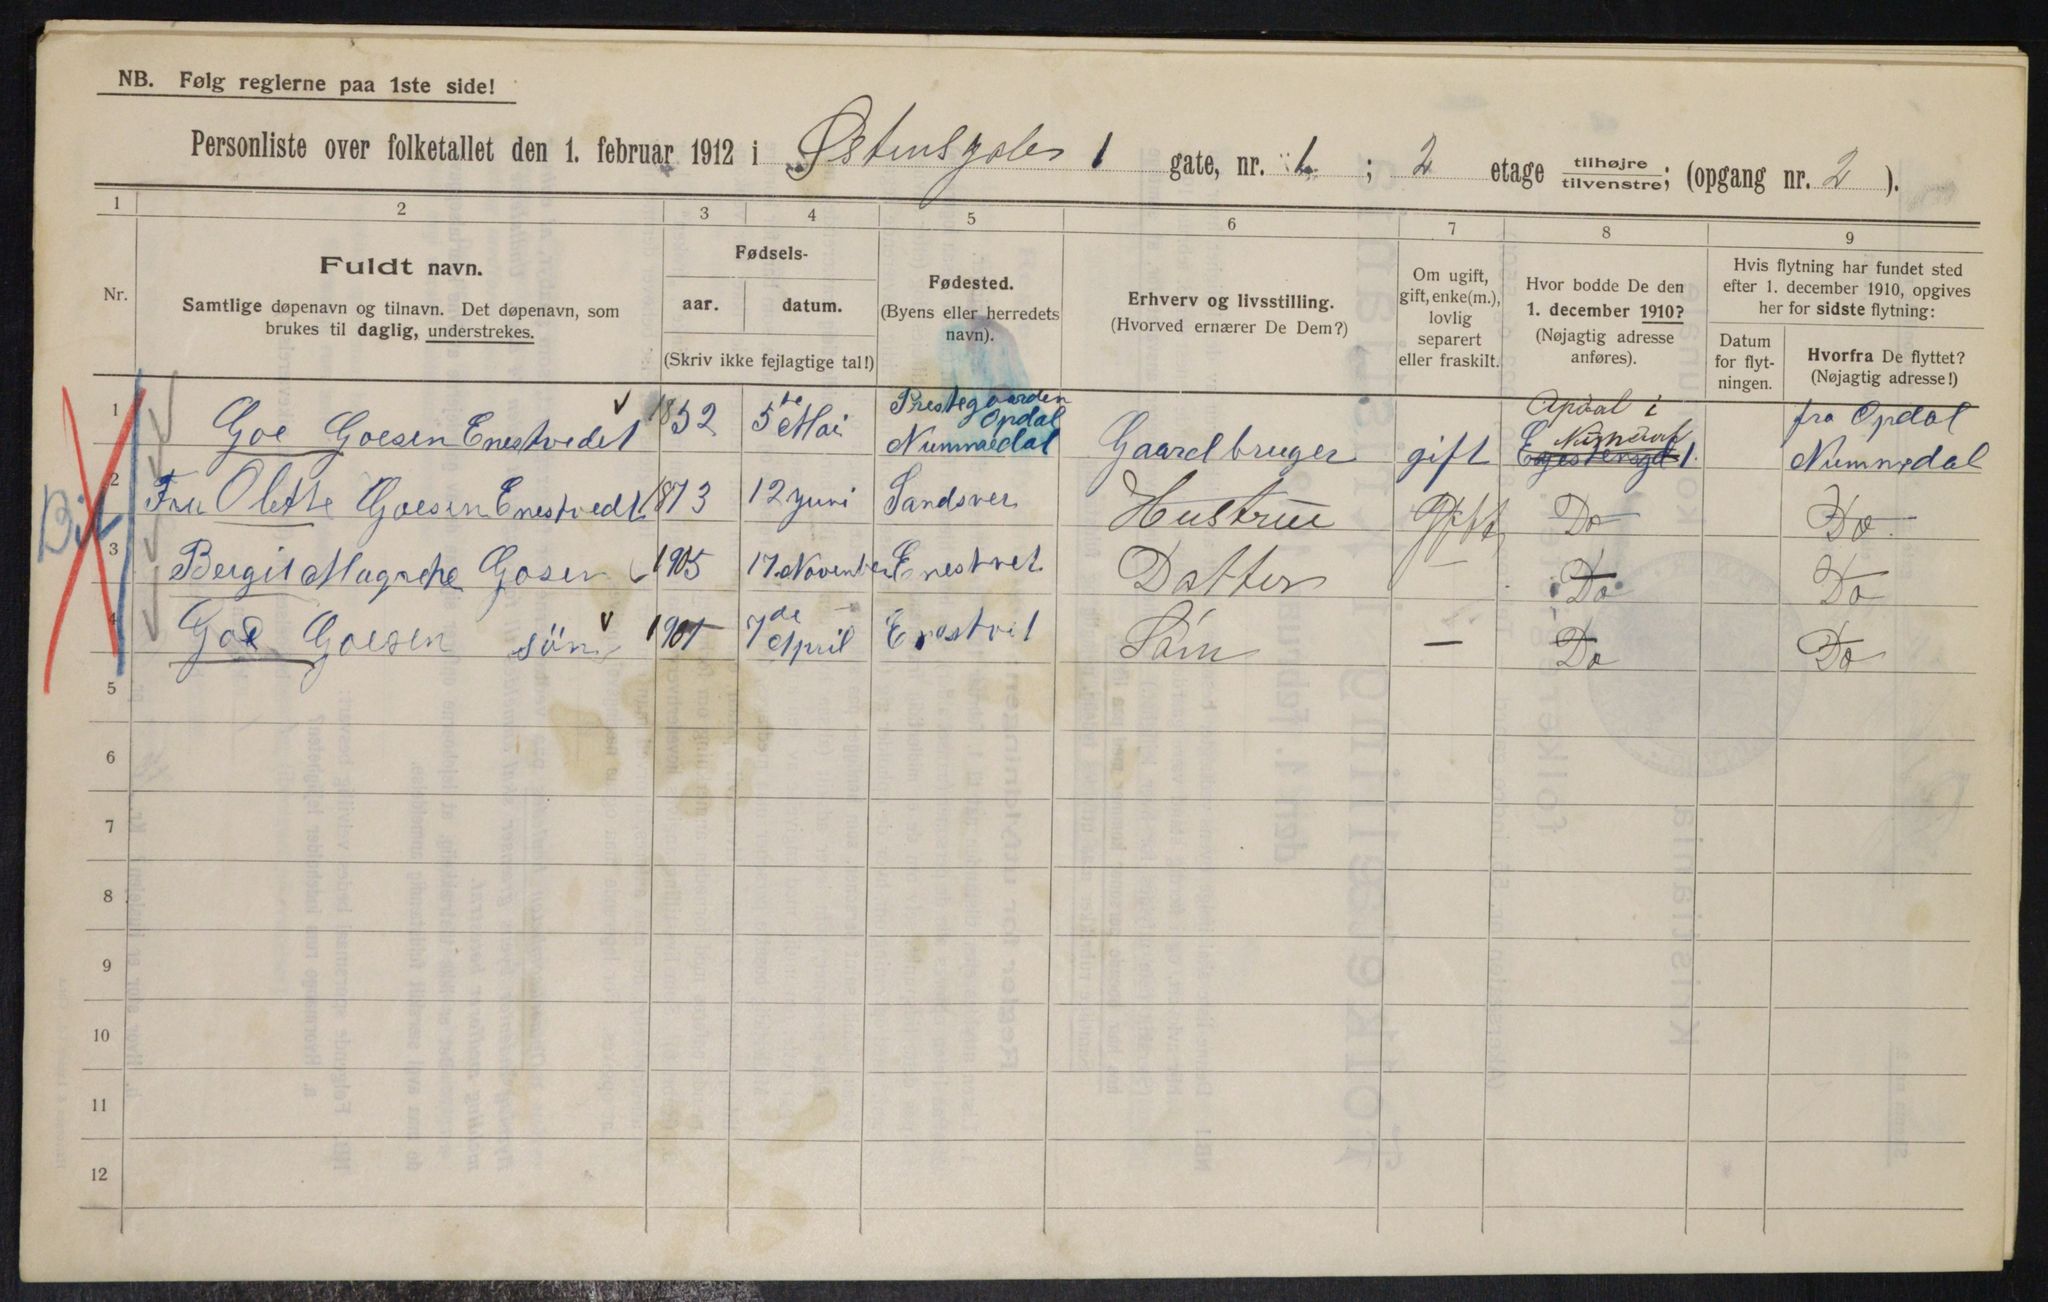 NB. Følg reglerne paa 1ste side!
Personliste over folketallet den 1. februar 1912 i Østensgolen 1 gate, nr. 1 ; 2 etage tilhøjre tilvenstre; (opgang nr. 2 ).
1 2 3 4 5 6 7 8 9
Nr.
Fuldt navn.
Samtlige døpenavn og tilnavn. Det døpenavn, som
brukes til daglig, understrekes.
Fødsels-
aar. datum.
(Skriv ikke fejlagtige tal!)
Fødested.
(Byens eller herredets
navn).
Erhverv og livsstilling.
(Hvorved ernærer De Dem?)
Om ugift,
gift, enke(m.),
lovlig
separert
eller fraskilt.
Hvor bodde De den
1. december 1910?
(Nøjagtig adresse
anføres).
Hvis flytning har fundet sted
efter 1. december 1910, opgives
her for sidste flytning:
Datum
for flyt-
ningen.
Hvorfra De flyttet?
(Nøjagtig adresse!)
1 Goe Goesen Enestvedt 1852 5te Mai Prestegaarden Opdal Nummedal Gaardbruger gift Opdal i fra Opdal Nummedal
2 Fru Olette Goesen Enestvedt 1873 12 juni Sandsver Hustrue Gift Do Do
3 Bergit Magrehe Gosen 1905 17. November Enestvet Datter – Do Do
4 Goe Goesen sön 1901 7de April Enestvet Sön – Do Do
5
6
7
8
9
10
11
12